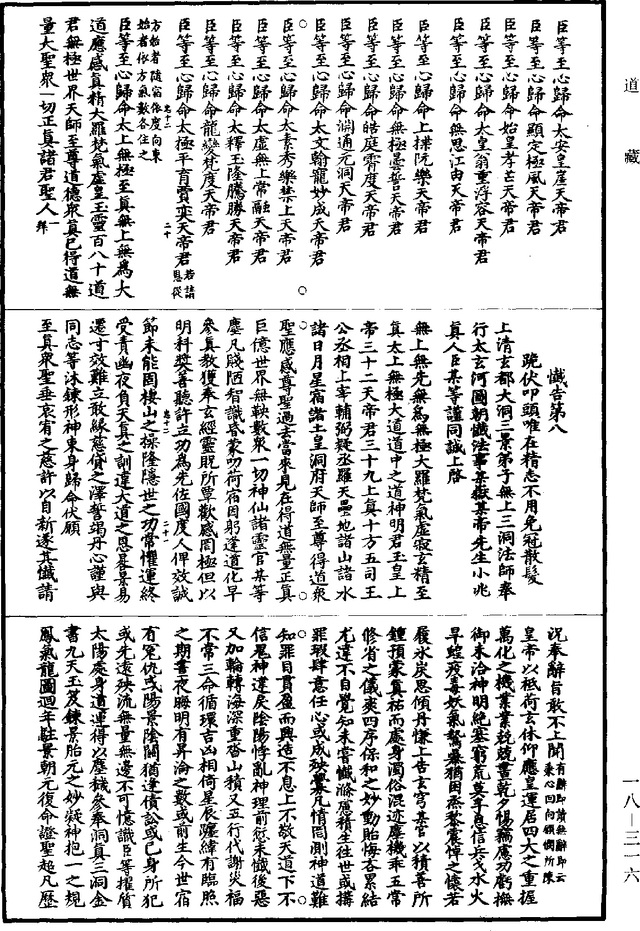 道藏
臣等至心歸命太安皇崖天帝君
臣等至心歸命顯定極風天帝君
臣等至心歸命始皇孝芒天帝君
臣等至心歸命太皇翁重浮容天帝君
臣等至心歸命無思江由天帝君
臣等至心歸命上揲阮樂天帝君
臣等至心歸命無極曇誓天帝君
臣等至心歸命皓庭霄度天帝君
臣等至心歸命淵通元洞天帝君
臣等至心歸命太文翰寵妙成天帝君
臣等至心歸命太素秀樂禁上天帝君
臣等至心歸命太虛無上常融天帝君
臣等至心歸命太釋玉隆騰勝天帝君
臣等至心歸命龍變梵度天帝君
臣等至心歸命太極平育賈奕天帝君若請恩從
方始者隨宿依度向東
始者依方氣數各住之
臣等至心歸命太上無極至真無上無為大
道應感真精大羅梵氣虛皇玉靈百八十道
君無極世界天師至尊道德眾真已得道無
量大聖眾一切正真諸君聖人一拜
懺告第八
跪伏叩頭唯在精志不用免冠散髮
上清玄都大洞三景弟子無上三洞法師奉
行太玄河圖朝懺法事某嶽某帝先生小兆
真人臣某等謹同誠上啓
無上無先無為無極大羅梵氣虛寂玄精至
真太上無極大道道中之道神明君玉皇上
帝三十二天帝君三十九上真十方五司王
公丞相上宰輔弼疑丞羅天壘地諸山諸水
諸日月星宿諸土皇洞府天師至尊得道眾
聖應感尊聖過去當來見在得道無量正真
巨億世界無鞅數眾一切神仙諸靈官某等
塵凡賤陋智識昏蒙叨荷宿因躬逢道化早
參真教獲奉玄經靈貺所覃歡感罔極但以
明科獎善聽許立功為先佐國度人俾效誠
節未能固棲山之操隆隱世之功常懼運終
受責幽夜負天真之訓違大道之恩暮景易
遷寸效難立敢緣慈貸之澤誓竭丹心謹與
同志等沐錬形神束身歸命伏願
至真眾聖垂哀宥之慈許以自新遂其懺請
況奉辭旨敢不上聞有辭即讀無辭即云秉心回向願憫所陳
皇帝以祗荷玄休仰應皇運居四大之重握
萬化之機業業兢兢晝乾夕惕竊慮功虧撫
御未洽神明絕塞窮荒莫革息信兵戈水火
旱蝗疫毒妖氣驚暴猶困烝黎震悼之懷若
履氷炭思傾丹慊上告玄穹某官以積善所
鍾預蒙真祐而處身濁俗混迹塵機乖五常
修省之儀爽四序保和之妙動貽悔吝累結
尤違不自覺知未嘗懺滌應積生往世或搆
罪瑕肆意任心或成殃釁凡情罔測神道難
知罪目貫盈而興造不息上不敬天道下不
信鬼神違戾陰陽悖亂神理前愆未懺後惡
又加輪轉海深重沓山積又五行代謝災福
不常三命循環吉凶相倚星辰躔緯有臨照
之期晝夜晦明有昇淪之數或前生今世宿
有冤仇或陽景陰關猶逢債訟或已身所犯
或先遠殃流無量無邊不可憶識臣等擢質
太陽處身道運得以塵穢參奉洞真三洞金
書九天玉笈鍊景胎元之妙凝神抱一之規
鳳氣龍圖迴年駐景朝元復命證聖超凡歷
一八—三一六